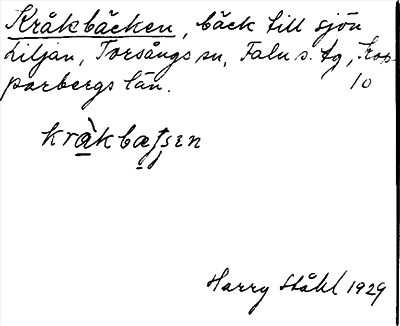 Kråkbäcken, bäck till sjön
Liljan, Torsångs sn, Falu s. tg, Kop-
parbergs län. 10
Harry Ståhl 1929